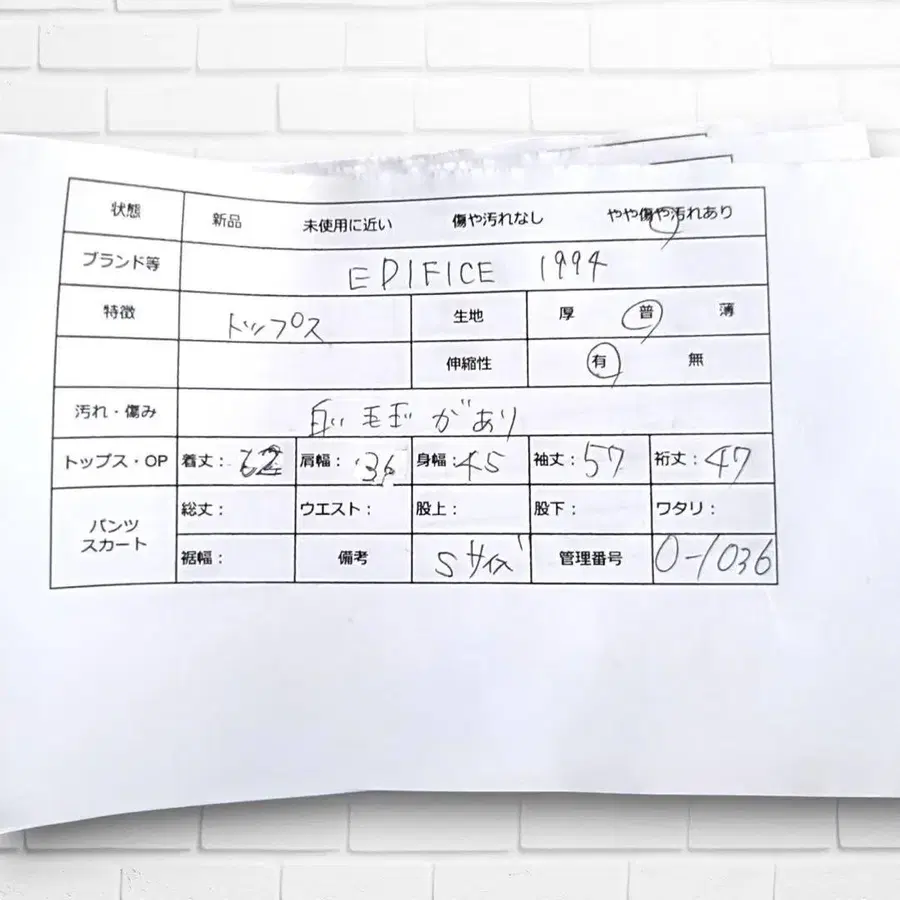 状態 新品 未使用に近い 傷や汚れなし やや傷や汚れあり
ブランド等 EDIFICE 1994
特徴 トップス 生地 厚 普 薄
伸縮性 有 無
汚れ・傷み 白い毛玉があり
トップス・OP 着丈: 62 肩幅: 36 身幅: 45 袖丈: 57 裄丈: 47
パンツ スカート 総丈: ウエスト: 股上: 股下: ワタリ:
裾幅: 備考 Sサイズ 管理番号 O-1036